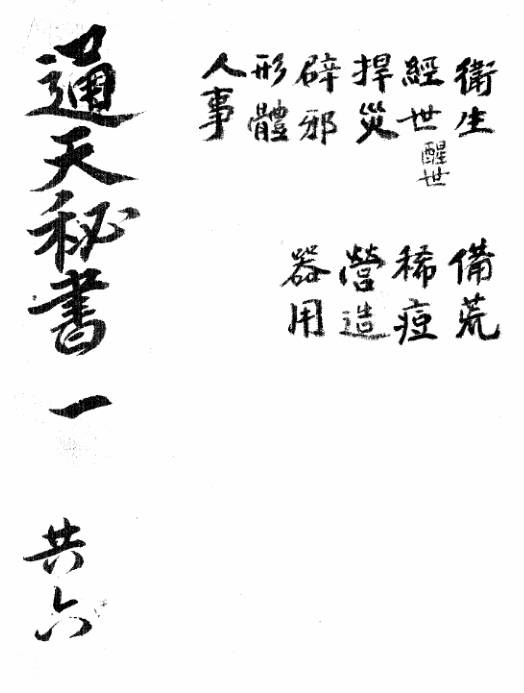 衛生
經世醒世
捍災
辟邪
形體
人事
備荒
稀痘
營造
器用
通天秘書 一 共六